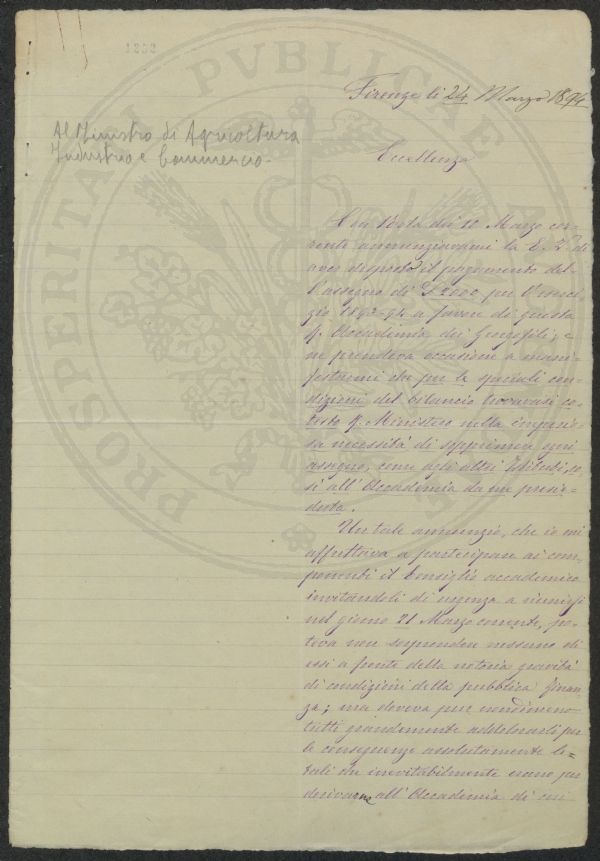 1333
Firenze li 24 Marzo 1894
Al Ministro di Agricoltura
Industria e Commercio
Eccellenza
Con Nota dei 10 Marzo cor-
rente annunziavami la E. V. di
aver disposto il pagamento del-
l'assegno di £ 2000 per l'eserci-
zio 1893-94 a favore di questa
R. Accademia dei Georgofili; e
ne prendeva occasione a mani-
festarmi che per le speciali con-
dizioni del bilancio trovavasi co-
testo R. Ministero nella imperio-
sa necessità di sopprimere ogni
assegno, come agli altri Istituti, co-
sì all'Accademia da me presie-
duta.
Un tale annunzio, che io mi
affrettava a partecipare ai com-
ponenti il Consiglio accademico
invitandoli di urgenza a riunirsi
nel giorno 21 Marzo corrente, po-
teva non sorprendere nessuno di
essi a fronte della notoria gravità
di condizioni della pubblica finan-
za; ma doveva pur nondimeno
tutti grandemente addolorarli per
le conseguenze assolutamente le-
tali che inevitabilmente erano per
derivarne all'Accademia di cui
PROSPERITATI PVBLICAE AVGENDAE